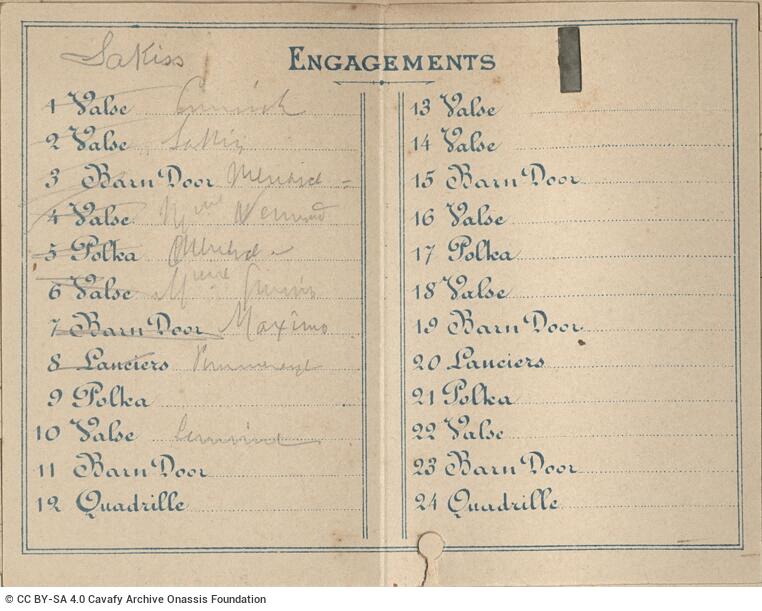 Sakiss
ENGAGEMENTS
1 Valse
2 Valse
3 Barn Door
4 Valse
5 Polka
6 Valse
7 Barn Door Maximo
8 Lanciers
9 Polka
10 Valse
11 Barn Door
12 Quadrille
13 Valse
14 Valse
15 Barn Door
16 Valse
17 Polka
18 Valse
19 Barn Door
20 Lanciers
21 Polka
22 Valse
23 Barn Door
24 Quadrille
© CC BY-SA 4.0 Cavafy Archive Onassis Foundation